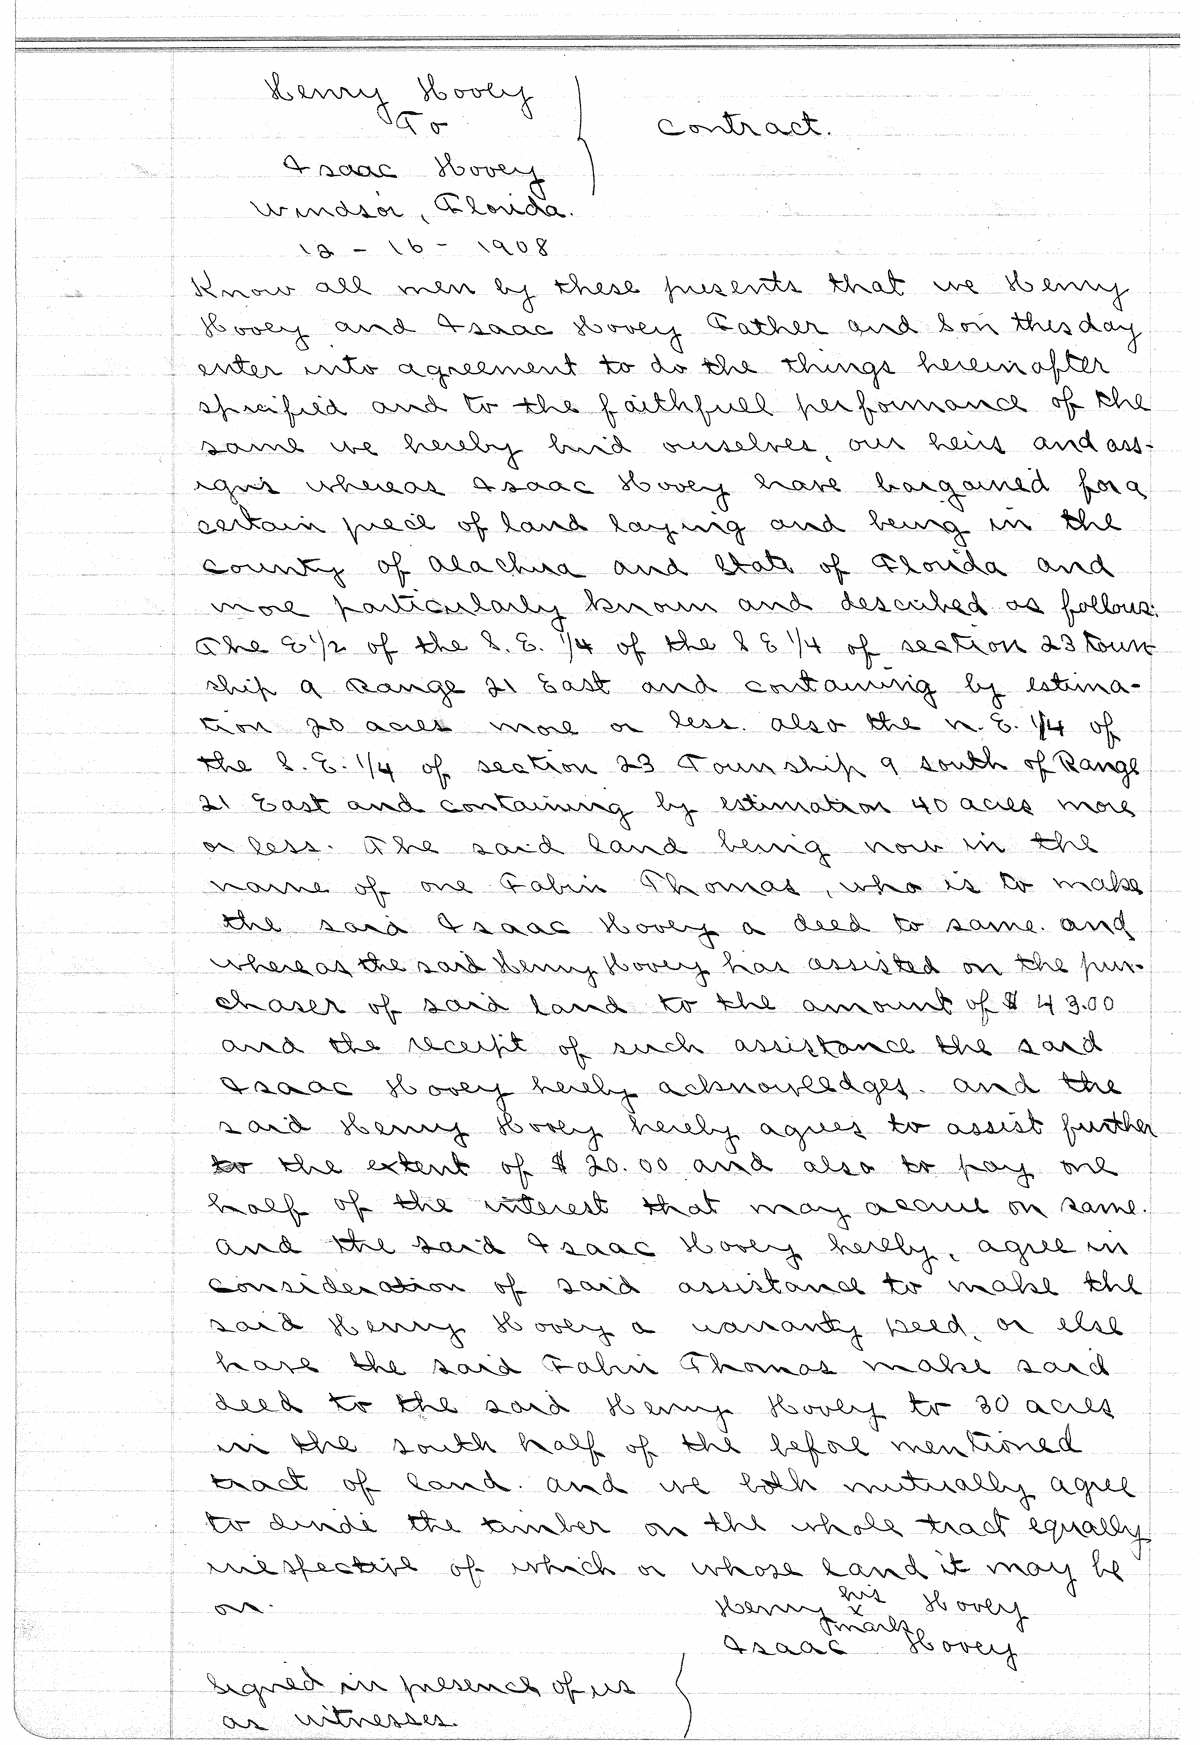 Henry Hovey
To
contract.
Isaac Hovey
Windsor, Florida.
12 - 16 - 1908
Know all men by these presents that we Henry
Hovey and Isaac Hovey Father and Son this day
enter into agreement to do the things hereinafter
specified and to the faithfull performance of the
same we hereby bind ourselves, our heirs and ass-
igns whereas Isaac Hovey have bargained for a
certain piece of land laying and being in the
county of Alachua and State of Florida and
more particularly known and described as follows:
The E 1/2 of the S. E. 1/4 of the S E 1/4 of section 23 town-
ship 9 Range 21 East and containing by estima-
tion 20 acres more or less. also the N. E. 1/4 of
the S. E. 1/4 of section 23 Township 9 south of Range
21 East and containing by estimation 40 acres more
or less. The said land being now in the
name of one Fabin Thomas, who is to make
the said Isaac Hovey a deed to same. and
whereas the said Henry Hovey has assisted on the pur-
chaser of said land to the amount of $ 43.00
and the receipt of such assistance the said
Isaac Hovey hereby acknowledges. and the
said Henry Hovey hereby agrees to assist further
to the extent of $ 20.00 and also to pay one
half of the interest that may accrue on same.
and the said Isaac Hovey hereby, agree in
consideration of said assistance to make the
said Henry Hovey a warranty Deed, or else
have the said Fabin Thomas make said
deed to the said Henry Hovey to 30 acres
in the south half of the before mentioned
tract of land. and we both mutually agree
to divide the timber on the whole tract equally
irrespective of which or whose land it may be
on.
Henry his x mark Hovey
Isaac Hovey
Signed in presence of us
as witnesses.